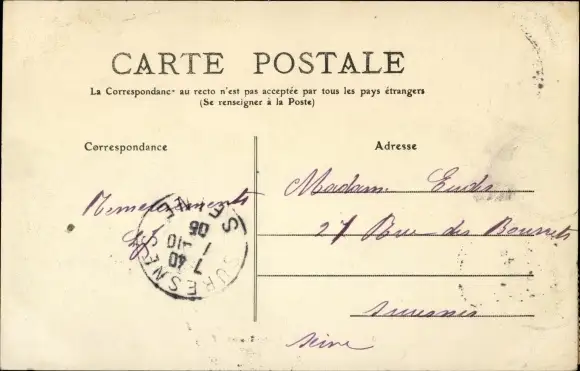 CARTE POSTALE
La Correspondance au recto n'est pas acceptée par tous les pays étrangers
(Se renseigner à la Poste)
Correspondance
Adresse
Remerciements
Madame Eudes
27 Rue des Bourets
Suresnes
Seine
SURESNES
7 40
1 -10
06